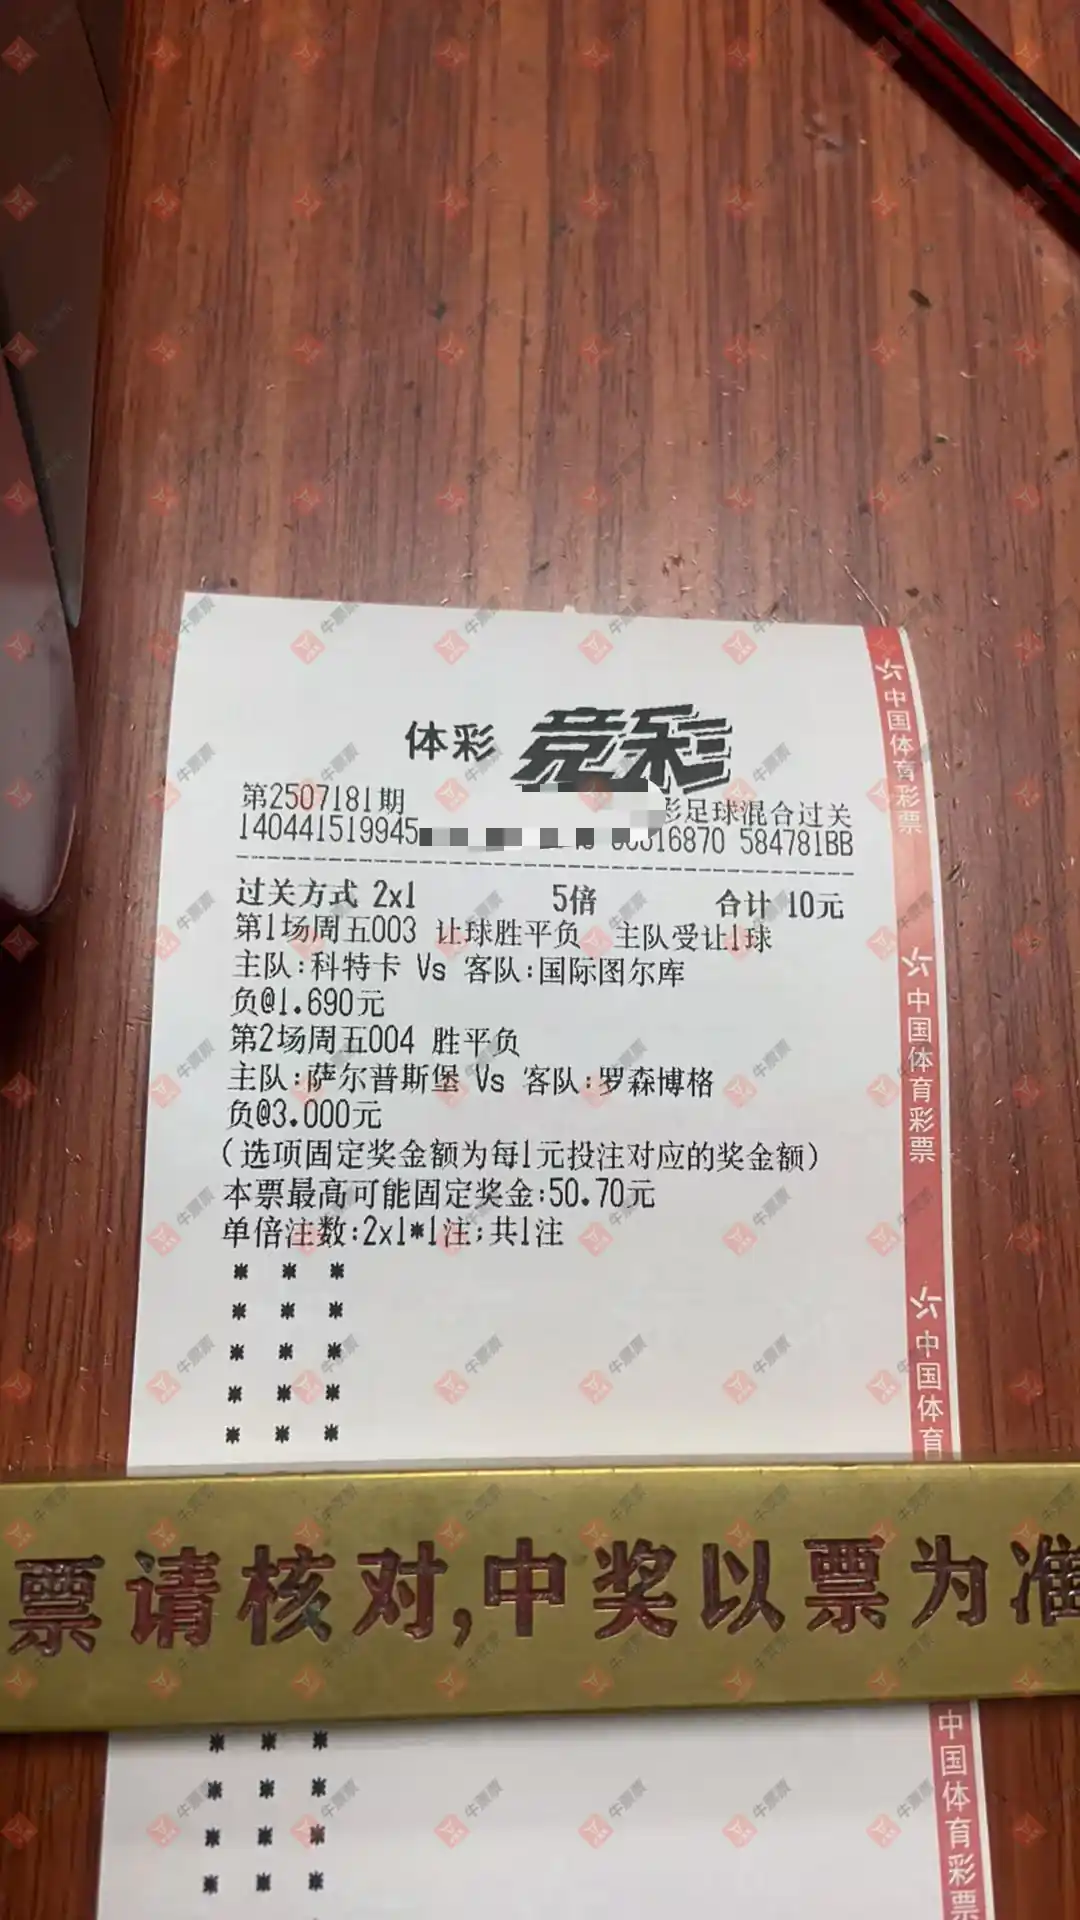 体彩 竞彩
第2507181期
彩足球混合过关
140441519945 316870 584781BB
过关方式 2x1 5倍 合计 10元
第1场周五003 让球胜平负 主队受让1球
主队:科特卡 Vs 客队:国际图尔库
负@1.690元
第2场周五004 胜平负
主队:萨尔普斯堡 Vs 客队:罗森博格
负@3.000元
(选项固定奖金额为每1元投注对应的奖金额)
本票最高可能固定奖金:50.70元
单倍注数:2x1*1注;共1注
* * *
* * *
* * *
* * *
* * *
票请核对,中奖以票为准
* * *
* * *
* * *
* * *
中国体育彩票
中国体育彩票
中国体育
中国体育彩票
牛票票